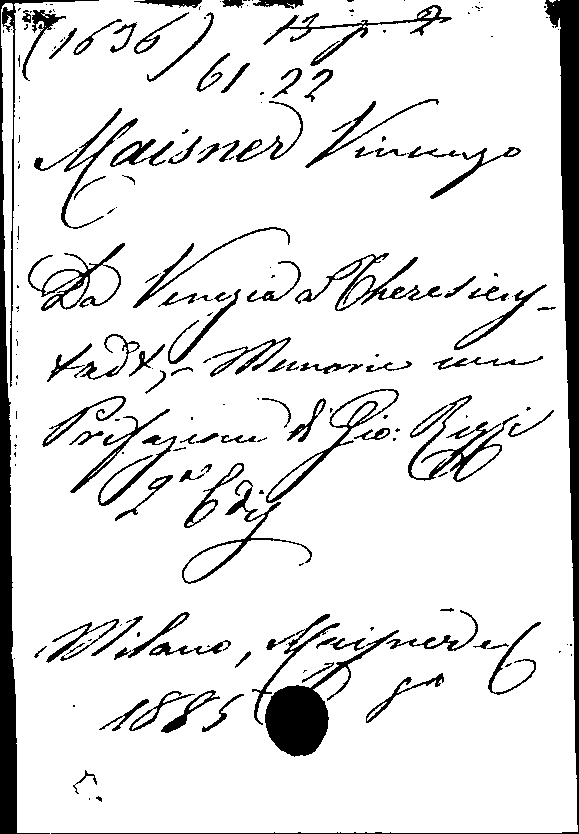 (1636) 13 p. 2
61.22
Maisner Vincenzo
Da Venezia a Theresien-
tadt, - Memorie con
Prefazione di Gio: Rizzi
2ª Ediz
Milano, Maisner e C
1885 8º